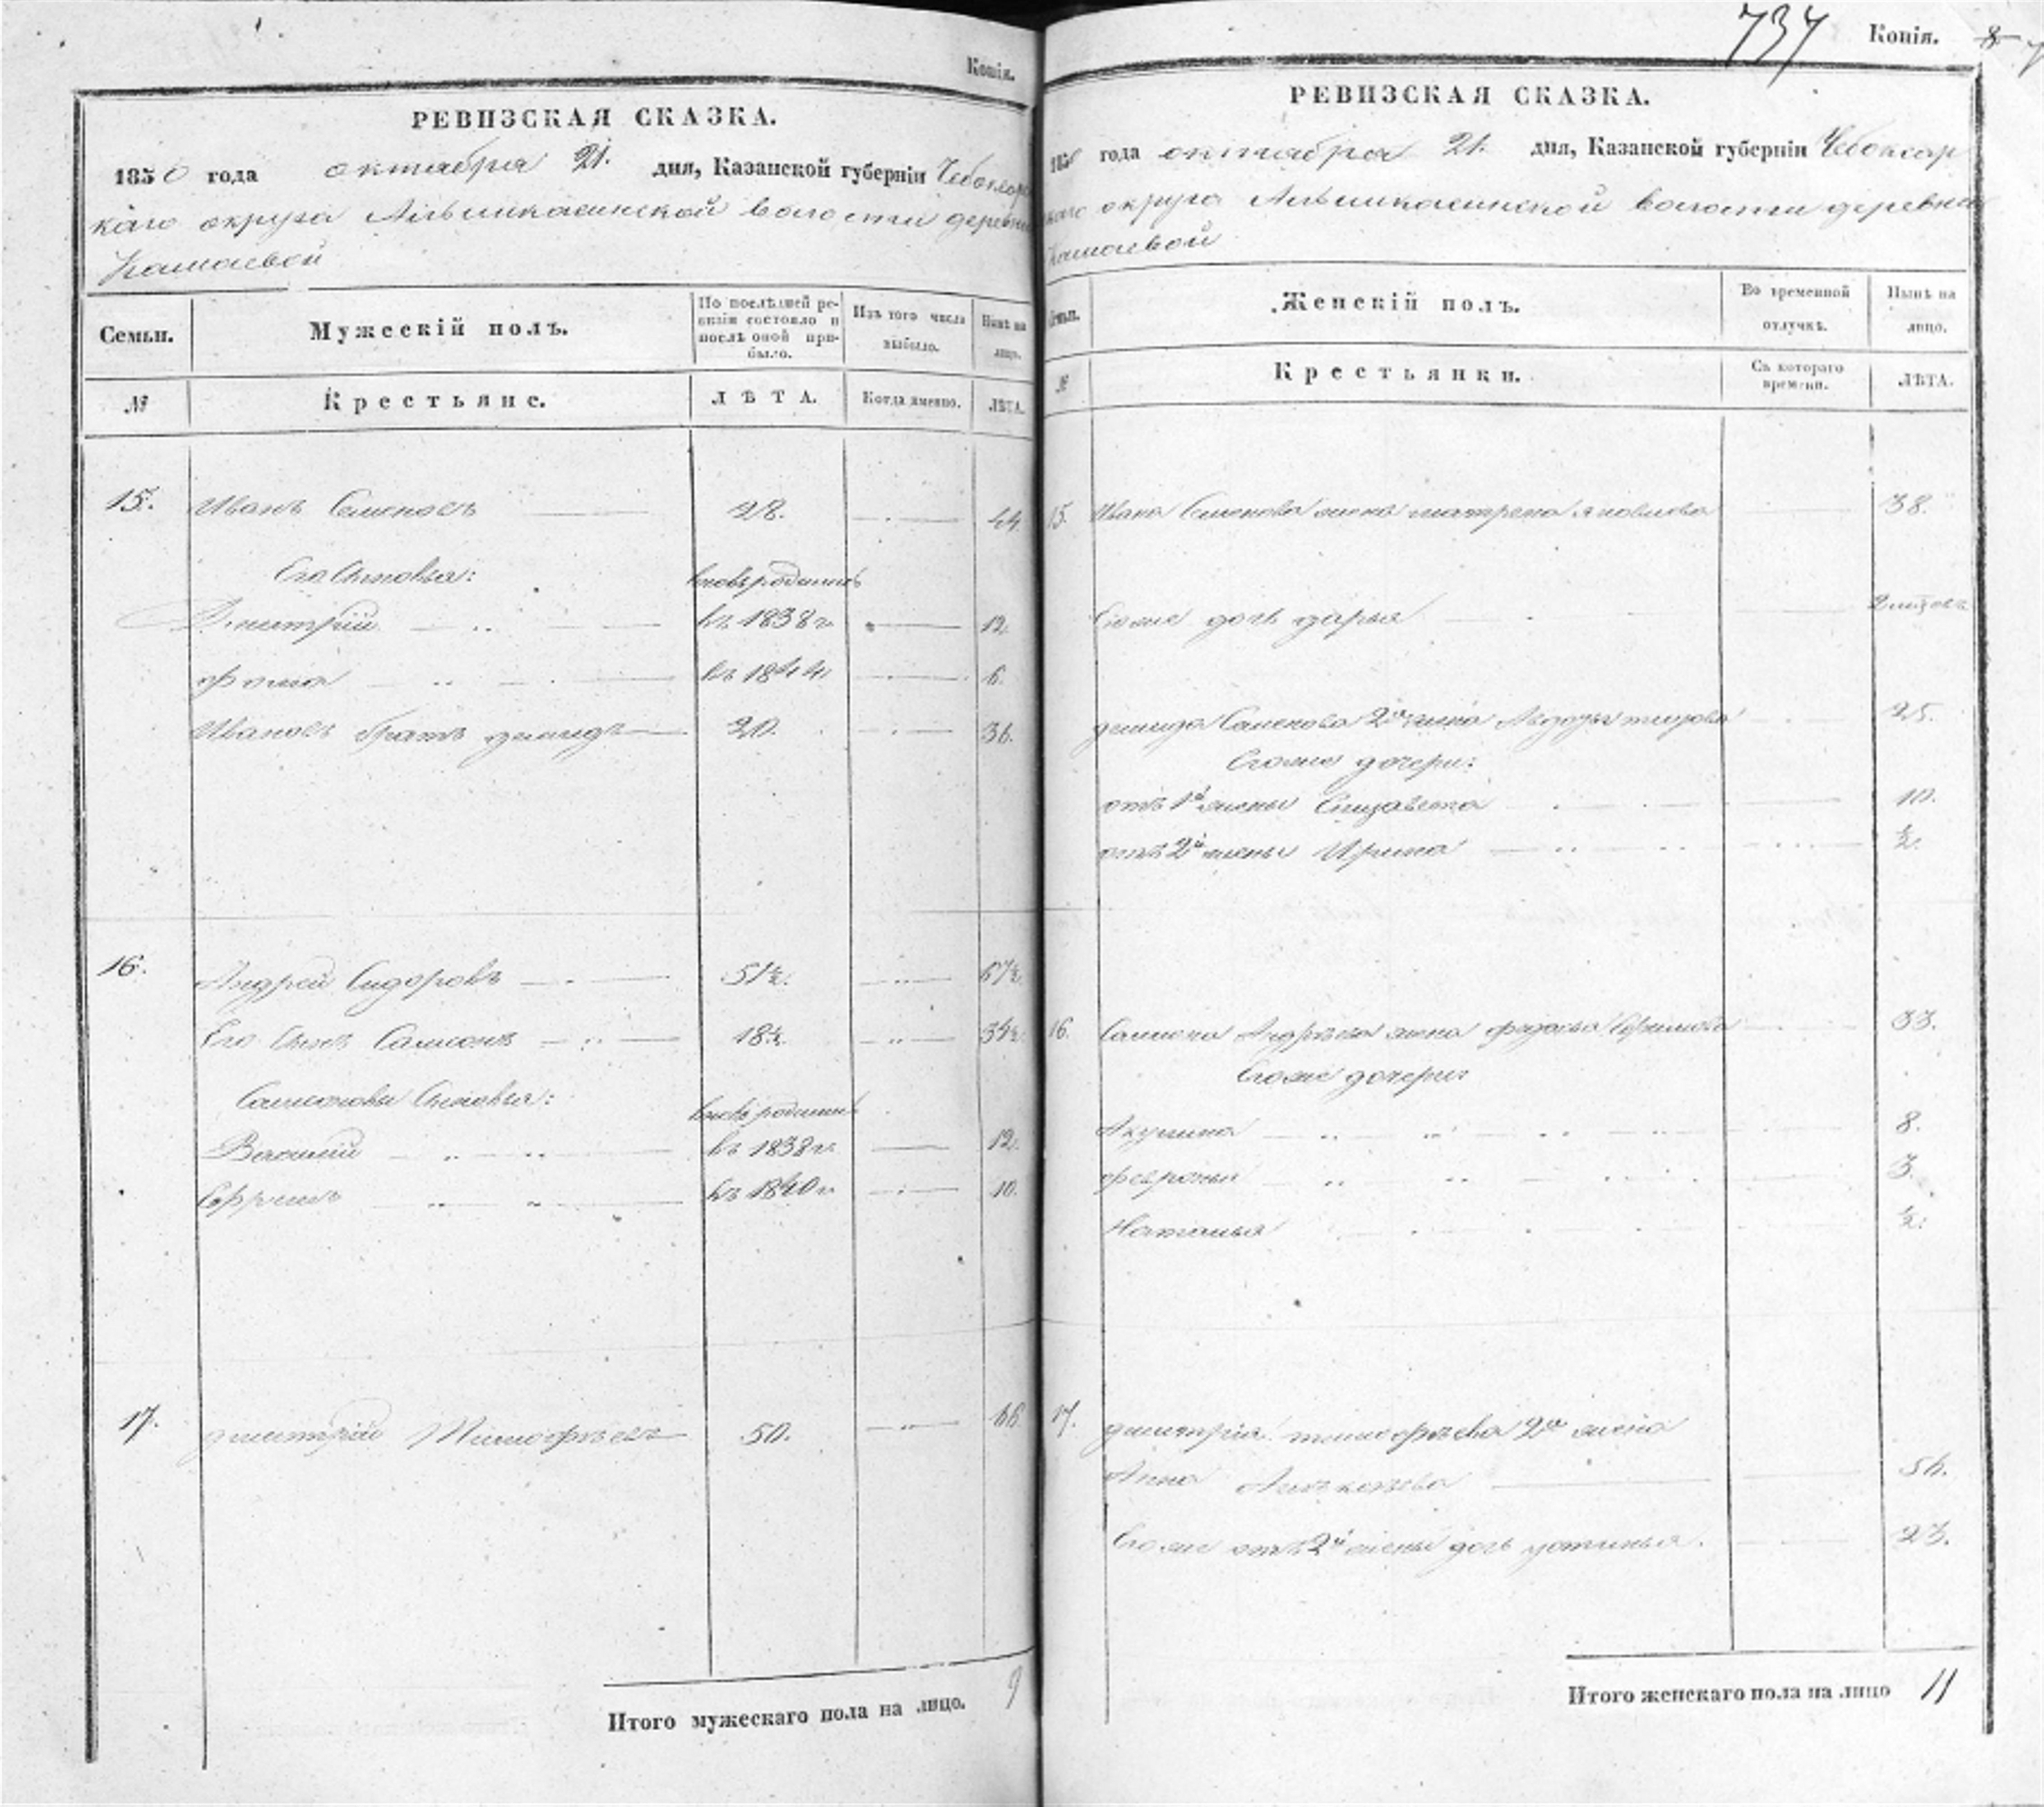 Копія.
РЕВИЗСКАЯ СКАЗКА.
1850 года октября 21. дня, Казанской губерніи Чебоксар
каго округа Алымкасинской волости деревни
Камаевой
Семьи. Мужескій полъ. По послѣдней ре-визіи состояло и послѣ оной при-было. Изъ того числа выбыло. Нынѣ на лицо.
№ Крестьяне. ЛѢТА. Когда именно. ЛѢТА.
15. Иванъ Семеновъ 28. 44
Его Сыновья: вновь родились
Дмитрій въ 1838 г. 12.
Фома въ 1844 6.
Ивановъ братъ Демидъ 20. 36.
16. Андрей Сидоровъ 51½. 67½
Его Сынъ Самсонъ 18½. 34½
Самсоновы Сыновья: вновь родились
Василій въ 1838 г. 12.
Ефремъ въ 1840 г. 10.
17. Димитрій Тимофѣевъ 50. 66
Итого мужескаго пола на лицо. 9
737 Копія. 8
РЕВИЗСКАЯ СКАЗКА.
1850 года октября 21. дня, Казанской губерніи Чебоксар
каго округа Алымкасинской волости деревни
Камаевой
Семьи. Женскій полъ. Во временной отлучкѣ. Нынѣ на лицо.
№ Крестьянки. Съ котораго времени. ЛѢТА.
15. Ивана Семенова жена Матрена Яковлева 38.
Егоже дочь Дарья
Демида Семенова 2я жена Авдотья 25.
Егоже дочери:
отъ 1й жены Елизавета 10.
отъ 2й жены Ирина ½.
16. Самсона Андрѣева жена Федосья Ефимова 33.
Егоже дочери:
Акулина 8.
Февронья 3.
Наталья ½.
17. Димитрія Тимофѣева 2я жена
Анна 56.
Егоже отъ 2й жены дочь Устинья. 23.
Итого женскаго пола на лицо 11